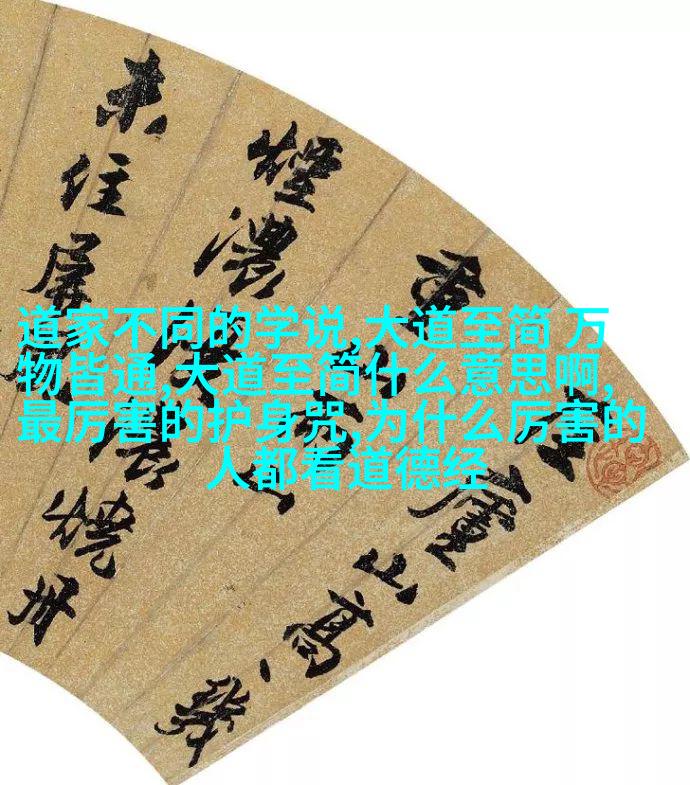 道家不同的学说,大道至简 万
物皆通,大道至简什么意思啊,
最厉害的护身咒,为什么厉害的
人都看道德经
廬山高
煙濃
未住屏燒丹